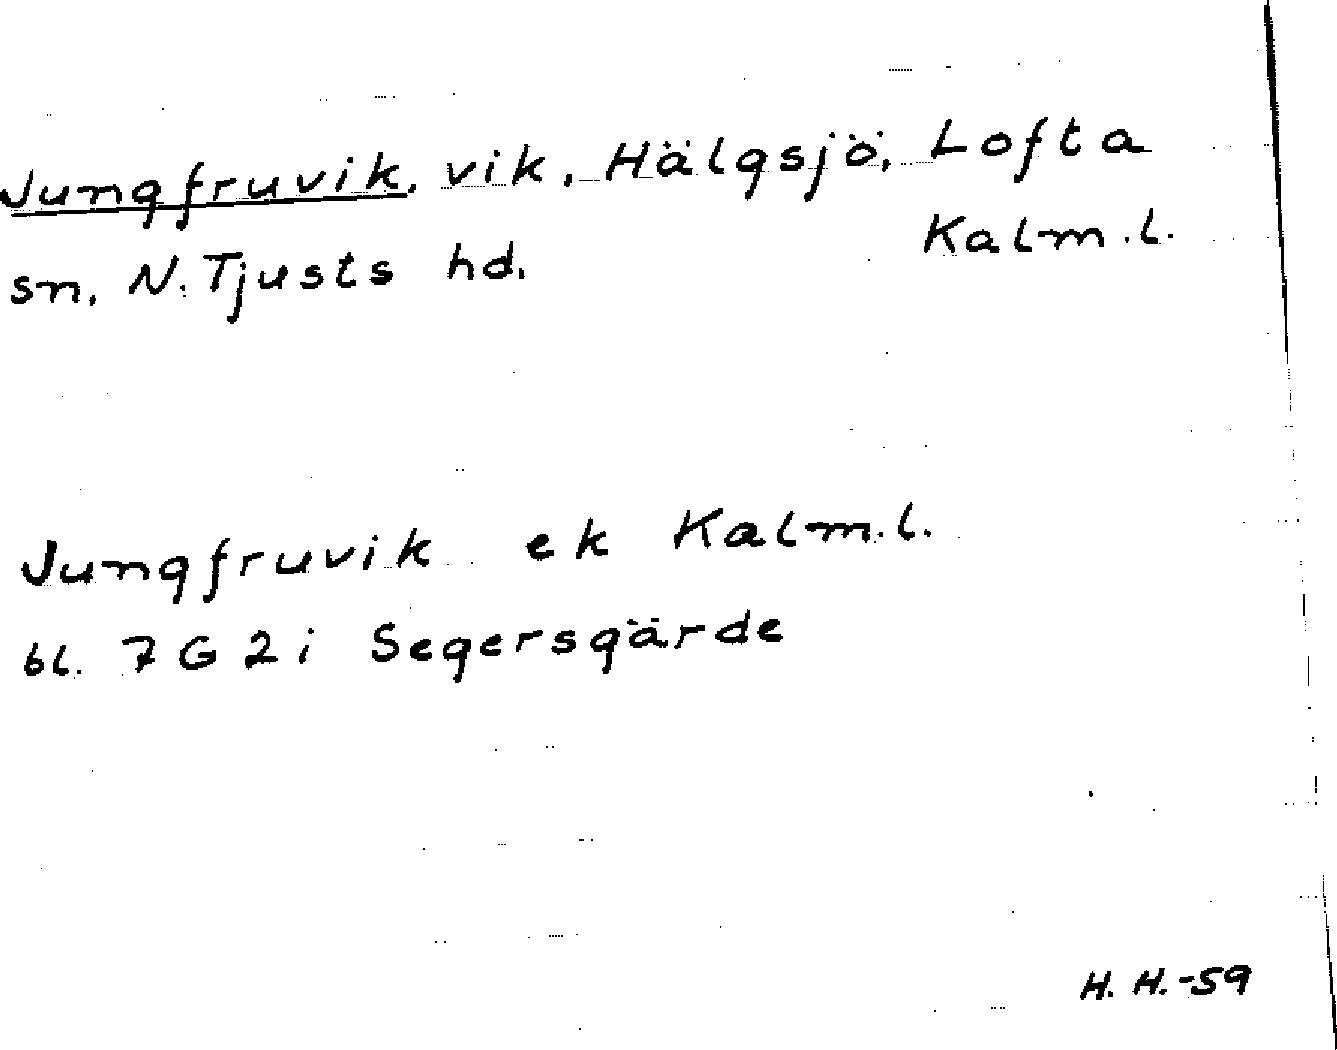 Jungfruvik, vik, Hälgsjö, Lofta
sn, N. Tjusts hd. Kalm.l.
Jungfruvik ek Kalm.l.
bl. 7 G 2 i Segersgärde
H. H.-59